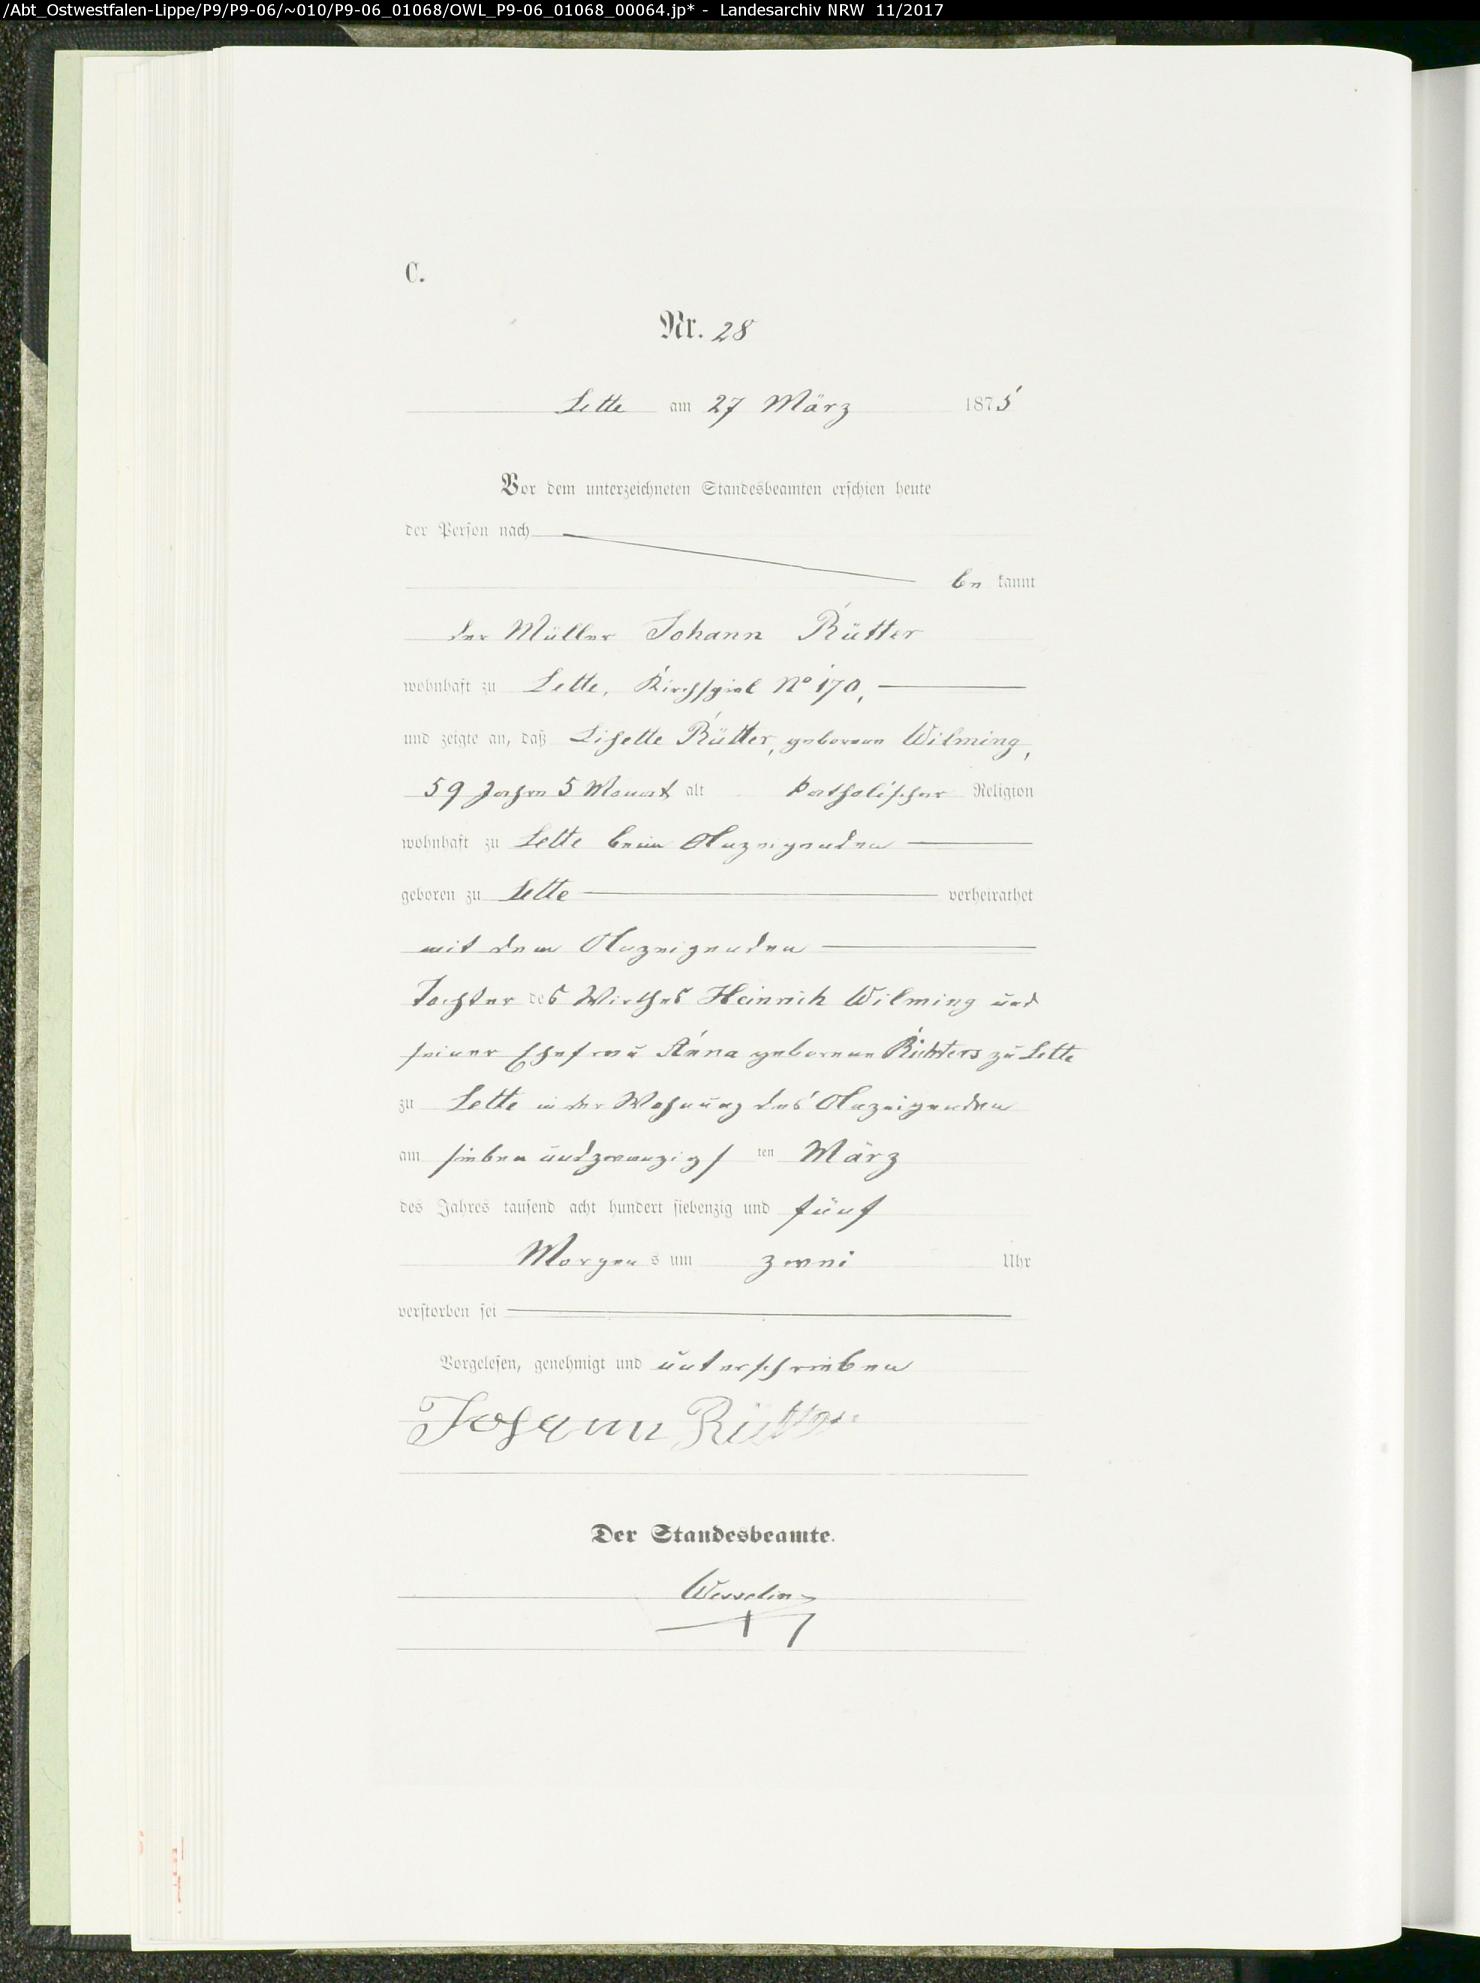 /Abt_Ostwestfalen-Lippe/P9/P9-06/~010/P9-06_01068/OWL_P9-06_01068_00064.jp* - Landesarchiv NRW 11/2017
C.
Nr. 28
Lette am 27 März 1875
Vor dem unterzeichneten Standesbeamten erschien heute
der Person nach
be kannt
der Müller Johann Rütter
wohnhaft zu Lette, Kirchspiel No 170,
und zeigte an, daß Lisette Rütter, geborene Wilming,
59 Jahre 5 Monat alt katholischer Religion
wohnhaft zu Lette beim Anzeigenden
geboren zu Lette verheirathet
mit dem Anzeigenden
Tochter des Wirthes Heinrich Wilming und
seiner Ehefrau Anna geborenen Richters zu Lette
zu Lette in der Wohnung des Anzeigenden
am sieben undzwanzigs ten März
des Jahres tausend acht hundert siebenzig und fünf
Morgens um zwei Uhr
verstorben sei
Vorgelesen, genehmigt und unterschrieben
Johann Rütter
Der Standesbeamte.
Wesseling